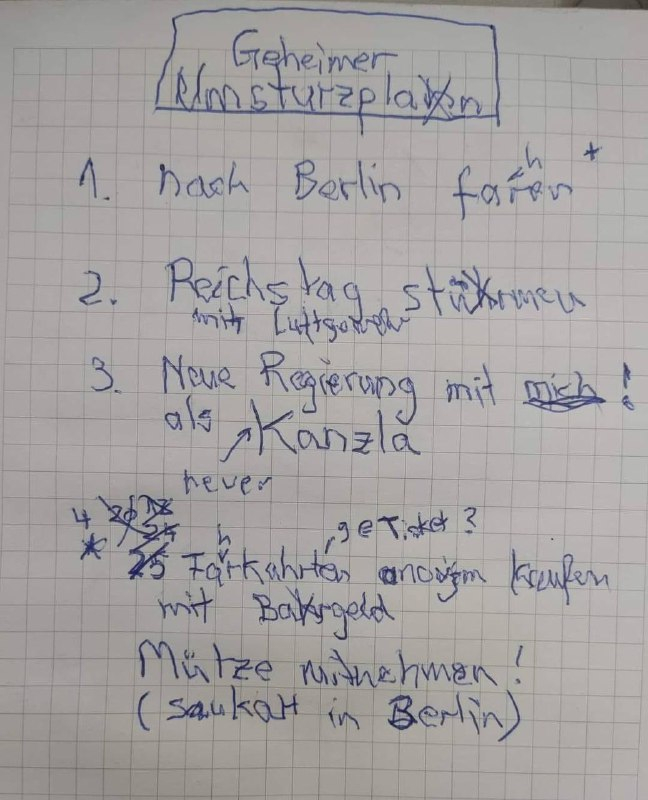 Geheimer
Umsturzplan
1. nach Berlin fahren *
2. Reichstag stürmen
mit Luftgewehr
3. Neue Regierung mit mich!
als Kanzla
neuer
4
9€ Ticket?
* Fahrkahrten anonym kaufen
mit Bargeld
Mütze mitnehmen!
(saukalt in Berlin)